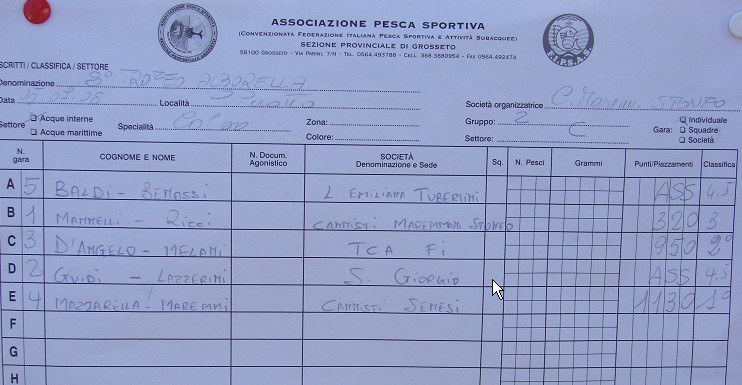 ASSOCIAZIONE PESCA SPORTIVA
(CONVENZIONATA FEDERAZIONE ITALIANA PESCA SPORTIVA E ATTIVITÀ SUBACQUEE)
SEZIONE PROVINCIALE DI GROSSETO
58100 GROSSETO - VIA PARINI, 7/H - TEL. 0564.493789 - CELL. 368.3880954 - FAX 0564.492474
F.I.P.S.A.S.
SCRITTI / CLASSIFICA / SETTORE
Denominazione 8° TROFEO ALBARELLA
Data 15.07.08 Località Società organizzatrice C. Maremm. STONFO
Settore Acque interne Acque marittime Specialità Colpo Zona: Colore: Gruppo: 2 Settore: C Gara: Individuale Squadre Società
N. gara COGNOME E NOME N. Docum. Agonistico SOCIETÀ Denominazione e Sede Sq. N. Pesci Grammi Punti/Piazzamenti Classifica
A 5 BALDI - BENASSI L. EMILIANA TUBERTINI ASS 4,5
B 1 MANNELLI - RICCI CANNISTI MAREMMANI STONFO 320 3
C 3 D'ANGELO - MELANI TCA FI 950 2°
D 2 GUIDI - LAZZERINI S. GIORGIO ASS 4,5
E 4 MAZZARELLA - MAREMMI CANNISTI SENESI 1130 1°
F
G
H